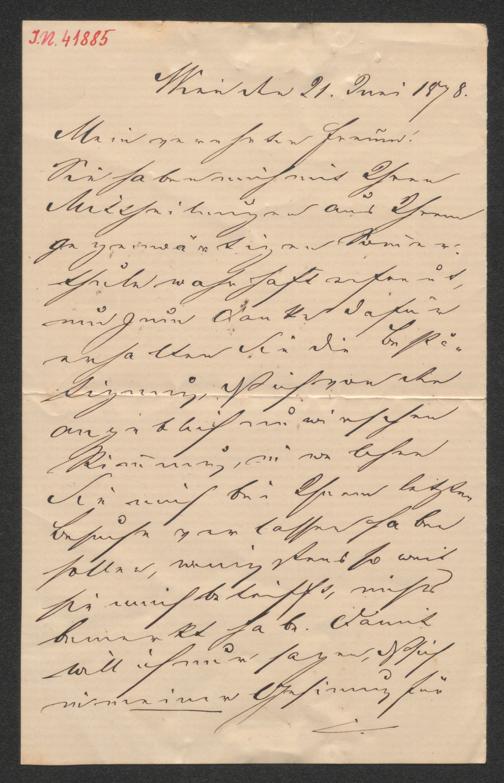 I.N. 41885
Wien den 21. Juni 1878.
Mein verehrter Freund!
Sie haben mich mit Ihren
Mittheilungen aus Ihrem
gegenwärtigen Sommer-
wahrhaft erfreut,
und zum Danke dafür
erhalten Sie die Bestä-
tigung, daß ich von der
angeblich unwirschen
Stimmung, in welcher
Sie mich bei Ihrem letzten
Besuche verlassen haben
sollen, wenigstens so weit
sie mich betrifft, nichts
bemerkt habe. Damit
will ich nur sagen, daß ich
in meiner Gesinnung für